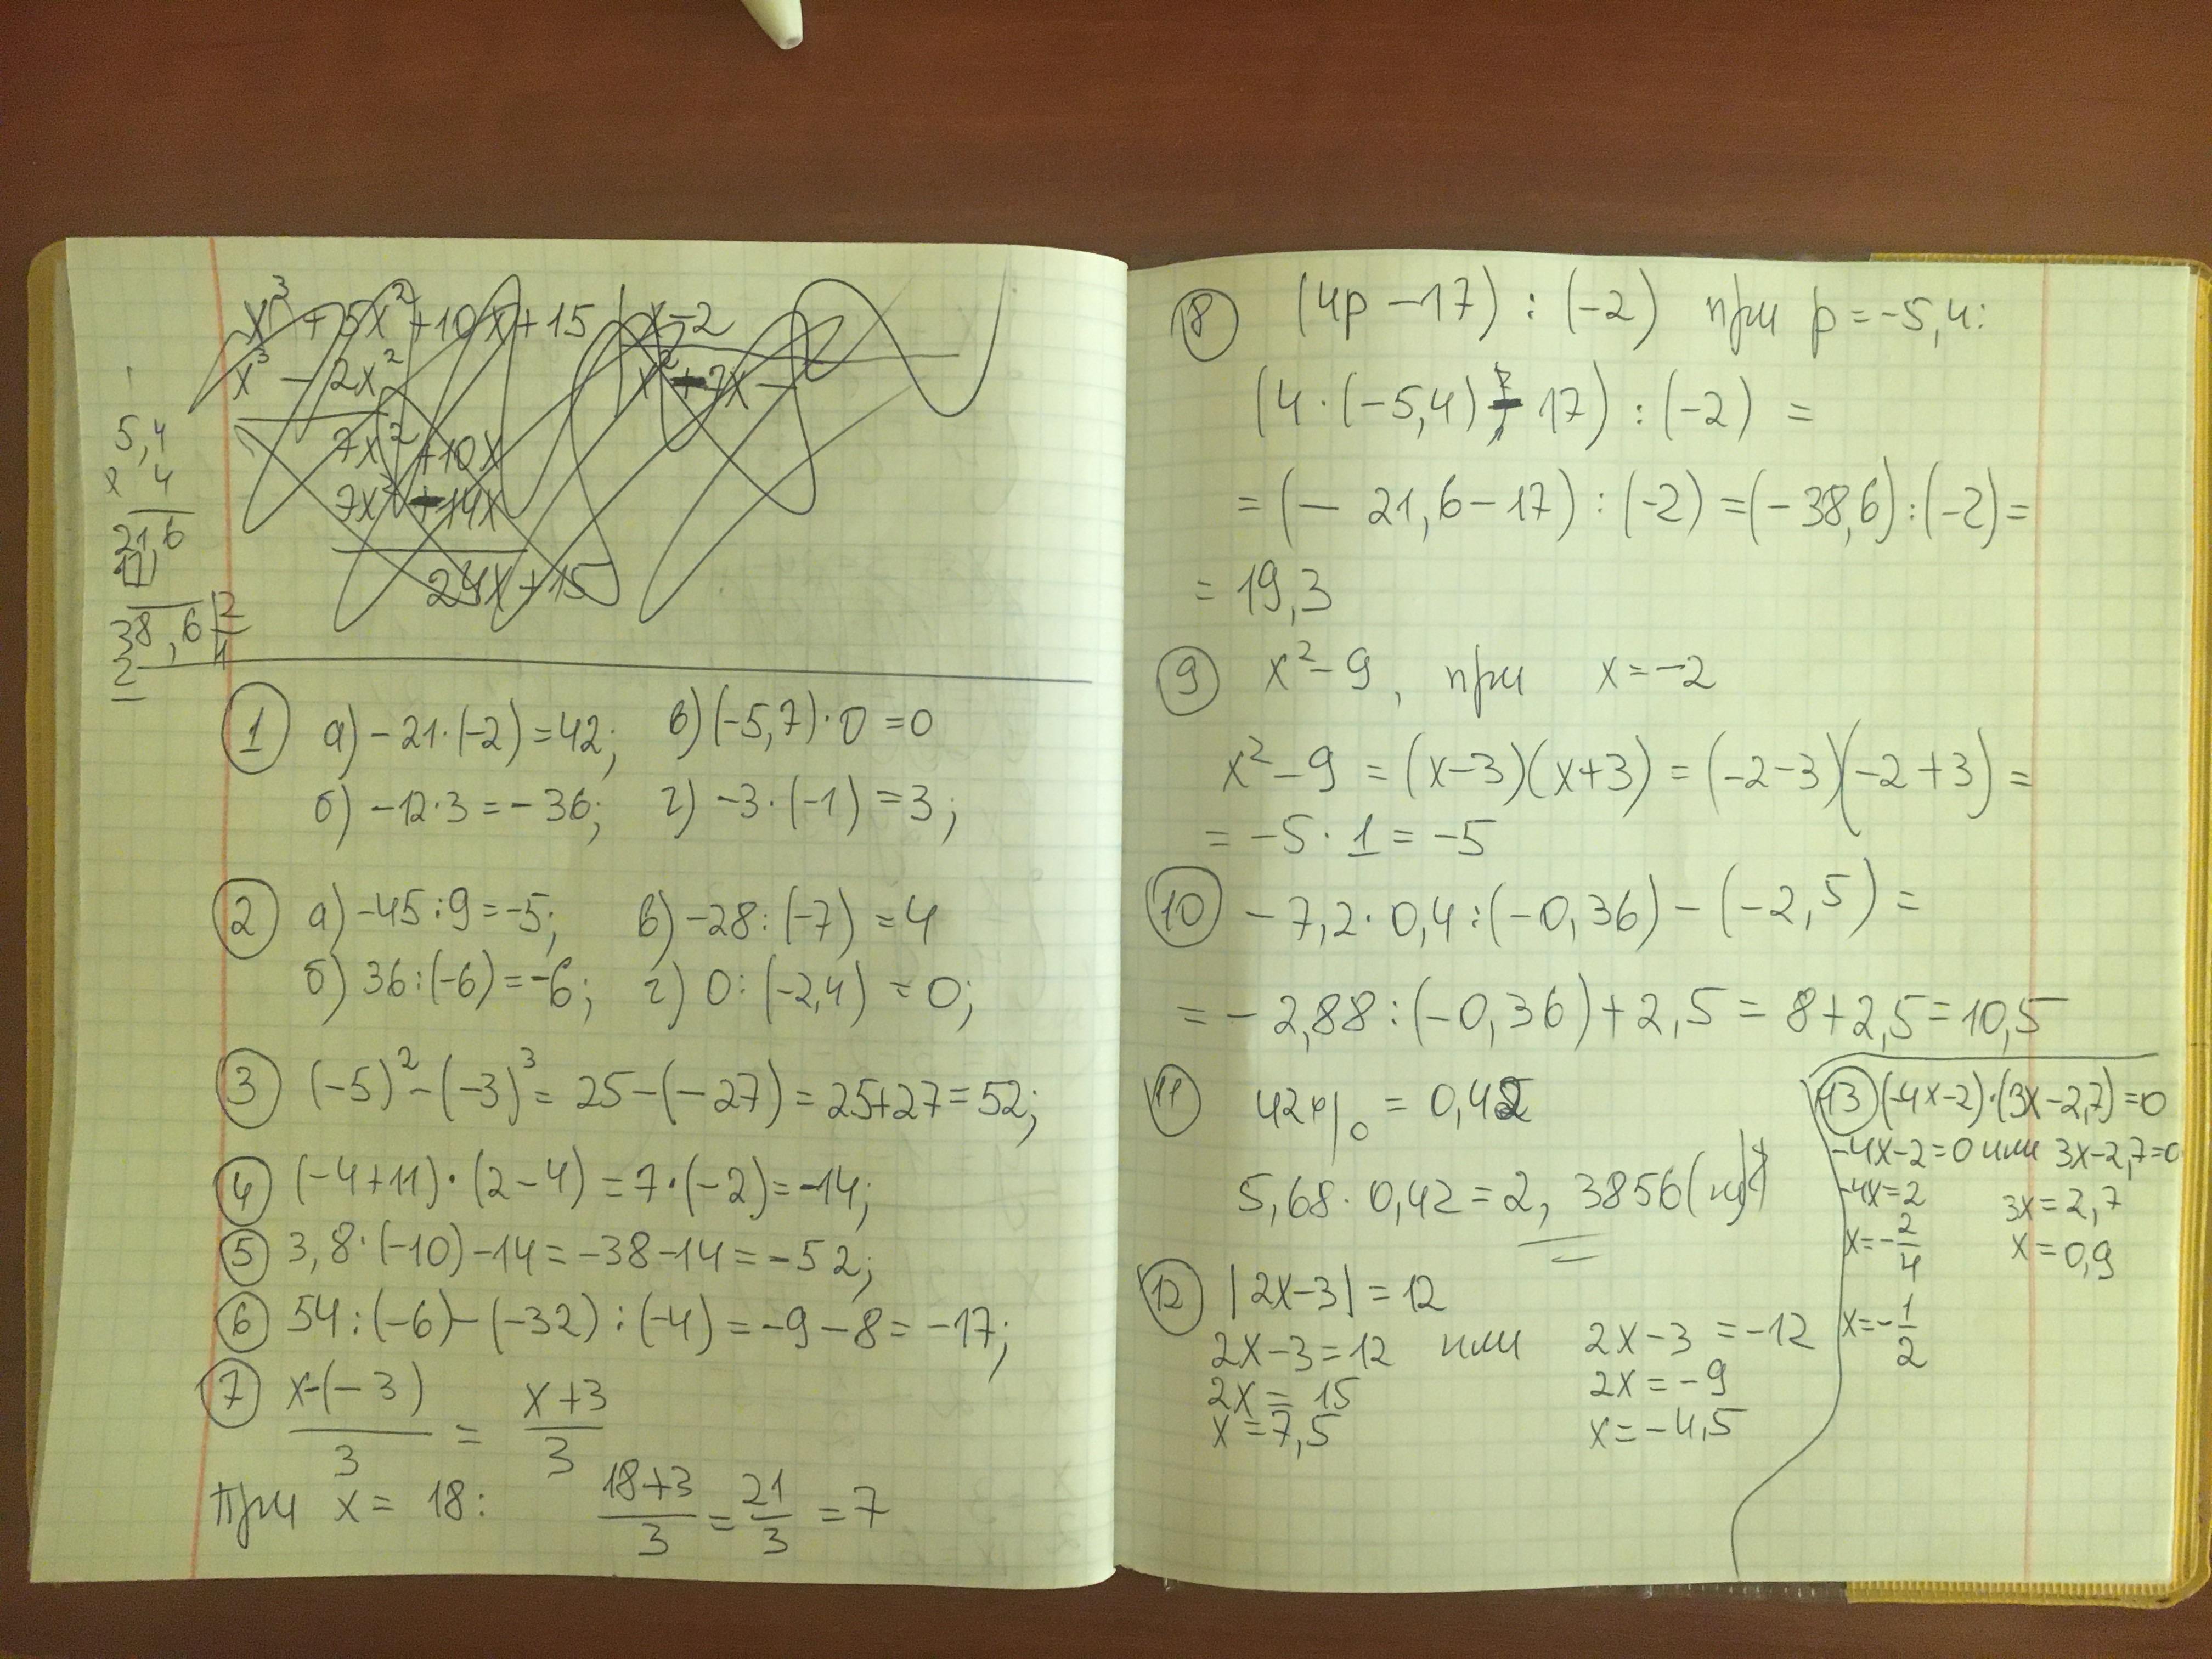 x³ + 5x² + 10x + 15 | x-2
x³ - 2x² x² + 7x -
7x² + 10x
7x² - 14x
24x + 15
5,4
x 4
21,6
17
38,6 | 2
2 1
① а) -21·(-2) = 42; в) (-5,7)·0 = 0
б) -12·3 = -36; г) -3·(-1) = 3;
② а) -45:9 = -5; в) -28:(-7) = 4
б) 36:(-6) = -6; г) 0:(-2,4) = 0;
③ (-5)² - (-3)³ = 25 - (-27) = 25+27 = 52;
④ (-4+11)·(2-4) = 7·(-2) = -14;
⑤ 3,8·(-10) - 14 = -38 - 14 = -52;
⑥ 54:(-6) - (-32):(-4) = -9 - 8 = -17;
⑦ x-(-3)/3 = x+3/3
При x = 18: 18+3/3 = 21/3 = 7
⑧ (4p - 17) : (-2) при p = -5,4:
(4·(-5,4) - 17) : (-2) =
= (- 21,6 - 17) : (-2) = (-38,6) : (-2) =
= 19,3
⑨ x² - 9, при x = -2
x² - 9 = (x-3)(x+3) = (-2-3)(-2+3) =
= -5 · 1 = -5
⑩ -7,2 · 0,4 : (-0,36) - (-2,5) =
= - 2,88 : (-0,36) + 2,5 = 8 + 2,5 = 10,5
⑪ 42% = 0,42
5,68 · 0,42 = 2,3856
⑫ |2x-3| = 12
2x-3 = 12 или 2x-3 = -12
2x = 15 2x = -9
x = 7,5 x = -4,5
⑬ (-4x-2)·(3x-2,7) = 0
-4x-2 = 0 или 3x-2,7 = 0
-4x = 2 3x = 2,7
x = -2/4 x = 0,9
x = -1/2